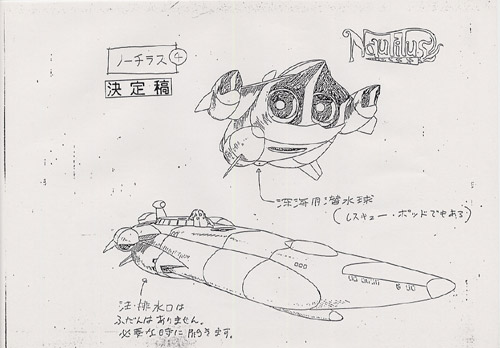 Nautilus
ノーチラス ④
決定稿
深海用潜水球
(レスキュー・ポッドでもある)
注・排水口は
ふだんはありません。
必要な時に開きます。